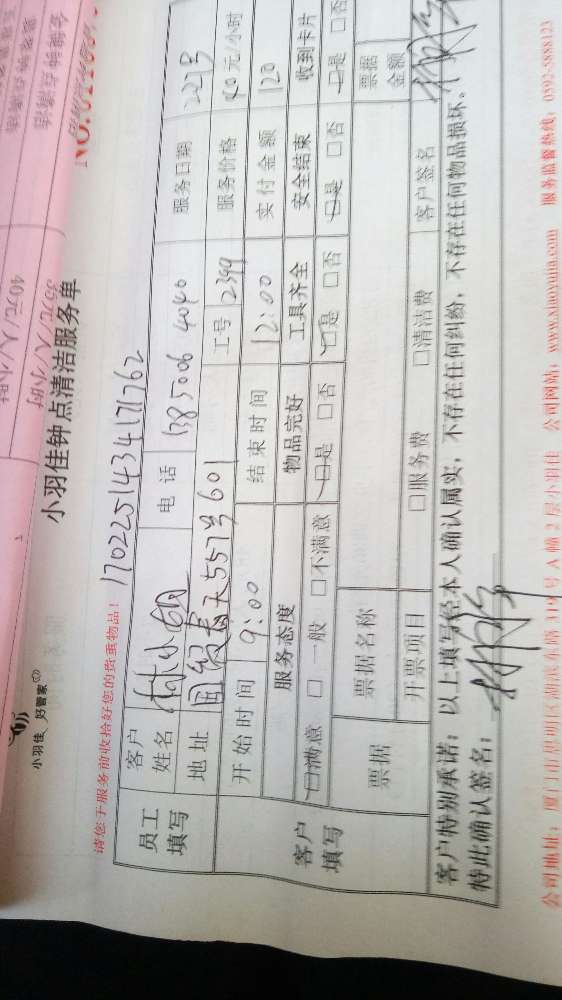 35元/人/小时
40元/人/小时
小羽佳 好管家
小羽佳钟点清洁服务单
请您于服务前收拾好您的贵重物品!
1702251434171762
员工填写
客户姓名 林小姐 电话 13850064040 服务日期 2275
地址 国贸春天557号601 工号 2399 服务价格 40元/小时
客户填写
开始时间 9:00 结束时间 12:00 实付金额 120
服务态度 物品完好 工具齐全 安全结束 收到卡片
□满意 □一般 □不满意 □是 □否 □是 □否 □是 □否 □是 □否
票据 票据名称 票据金额
开票项目 □服务费 □清洁费 客户签名
客户特别承诺: 以上填写经本人确认属实, 不存在任何纠纷, 不存在任何物品损坏。
特此确认签名:
公司地址: 厦门市思明区湖滨东路319号A幢2层小羽佳 公司网站: www.xiaoyujia.com 服务监督热线: 0592-5888123